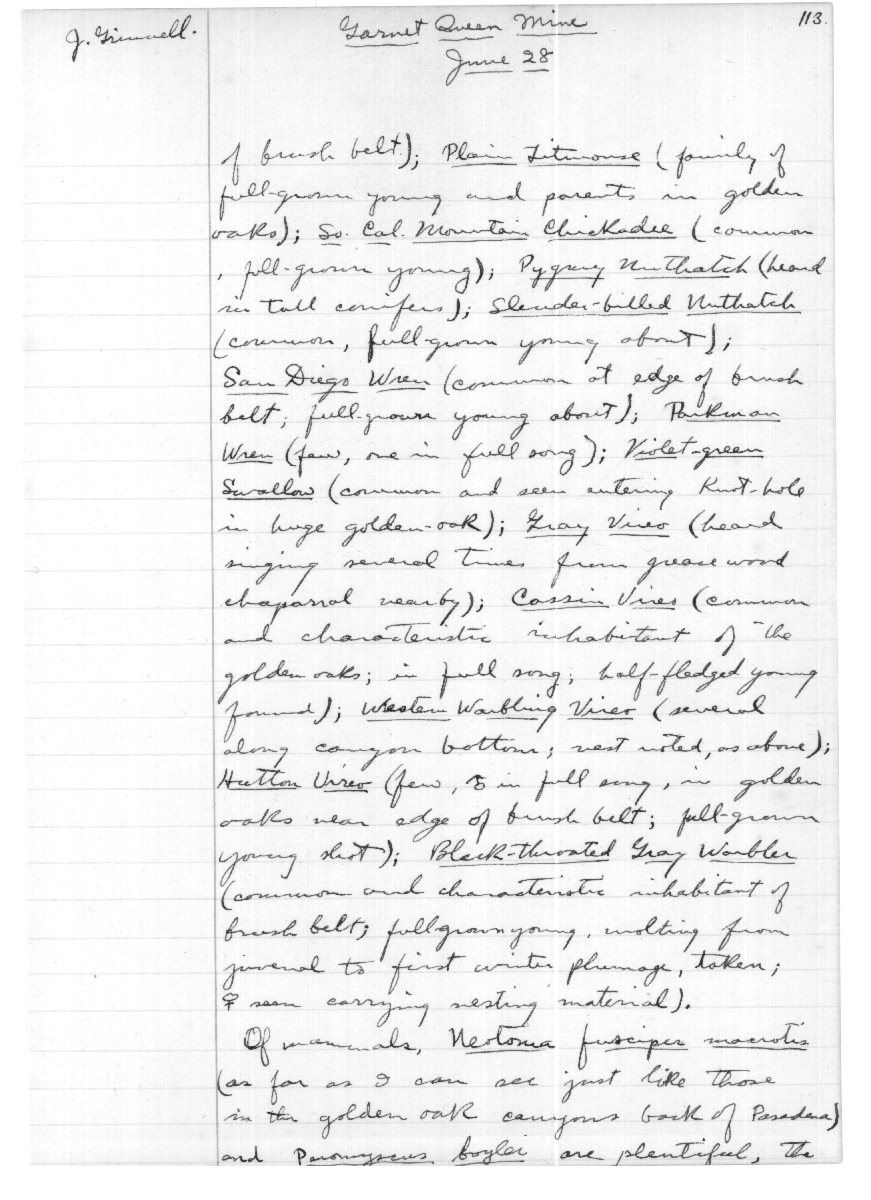 J. Grinnell.
Garnet Queen Mine
113.
June 28
of brush belt.); Plain Titmouse (family of
full-grown young and parents in golden
oaks); So. Cal. Mountain Chickadee (common
, full-grown young); Pygmy Nuthatch (heard
in tall conifers); Slender-billed Nuthatch
(common, full-grown young about);
San Diego Wren (common at edge of brush
belt; full-grown young about); Parkman
Wren (few, one in full song); Violet-green
Swallow (common and seen entering knot-hole
in huge golden-oak); Gray Vireo (heard
singing several times from greasewood
chaparral nearby); Cassin Vireo (common
and characteristic inhabitant of the
golden oaks; in full song; half-fledged young
found); Western Warbling Vireo (several
along canyon bottom; nest noted, as above);
Hutton Vireo (few, in full song, in golden
oaks near edge of brush belt; full-grown
young shot); Black-throated Gray Warbler
(common and characteristic inhabitant of
brush belt; full grown young, molting from
juvenal to first winter plumage, taken;
♀ seen carrying nesting material).
Of mammals, Neotoma fuscipes macrotis
(as far as I can see just like those
in the golden oak canyons back of Pasadena)
and Peromyscus boylei are plentiful, the